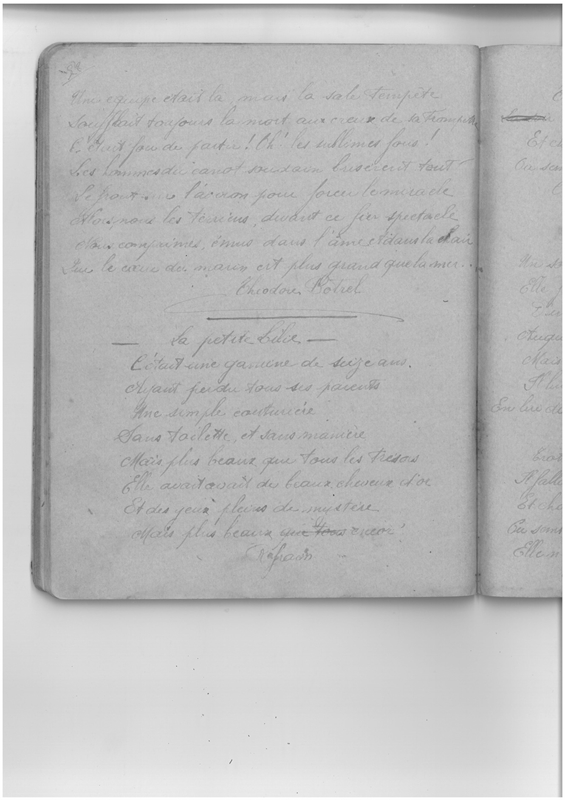 Une équipe était là, mais la sale tempête
Soufflait toujours la mort aux creux de sa Trompette
C'était fou de partir! Ah! les sublimes fous!
Les hommes du canot soudain
Se front sur l'aviron pour forcer le miracle
Alors nous les terriens, devant ce fier spectacle
Nous comprimes, émus dans l'âme et dans la chair
Que le cœur du marin est plus grand que la mer..
Théodore Botrel
— La petite Lilie —
C'était une gamine de seize ans.
Ayant perdu tous ses parents
Une simple couturière
Sans toilette, et sans manière
Mais plus beaux que tous les trésors
Elle avait avait de beaux cheveux d'or
Et des yeux pleins de mystère
Mais plus beaux que tous encor'
Refrain
Et
Elle
Mais
En lire de
A falla
Et cha
Elle n